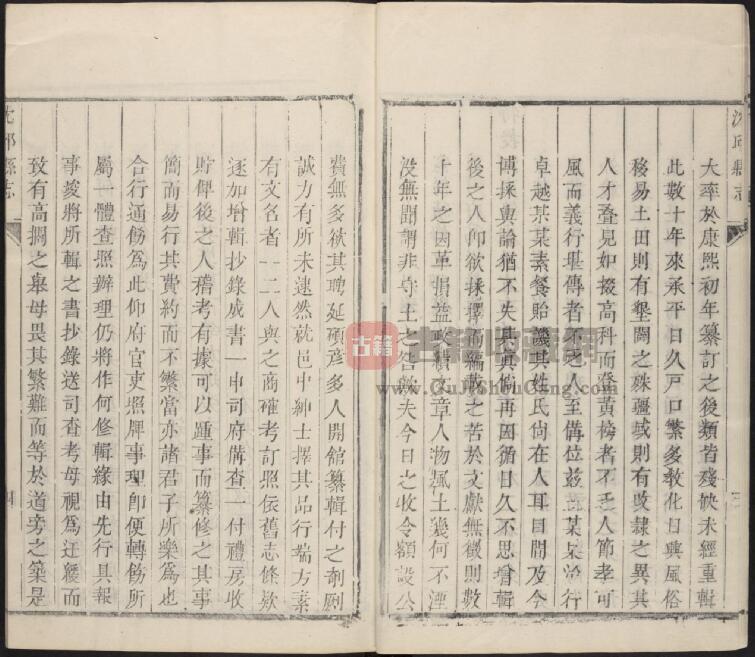 沈邱縣志
三
大率於康熙初年纂訂之後類皆殘缺未經重輯
此數十年來承平日久戸口繁多教化日興風俗
移易土田則有墾闢之殊疆域則有改隷之異其
人才疊見如掇高科而登黄榜者不乏人節孝可
風而義行堪傳者不乏人至備位茲土某某洽行
卓越某某素餐貽譏其姓氏尚在人耳目間及今
博採輿論猶不失其真倘再因循日久不思增輯
後之人即欲採擇而編載之苦於文獻無徵則數
十年之因革損益政績文章人物風土幾何不湮
没無聞謂非守土之咎歟夫今日之收令額設公
費無多欲其聘延碩彦多人開館纂輯付之剞劂
誠力有所未逮然就邑中紳士擇其品行端方素
有文名者一二人與之商確考訂照依舊志條欵
逐加增輯抄錄成書一申司府備查一付禮房收
貯俾後之人稽考有據可以踵事而纂修之其事
簡而易行其費約而不繁當亦諸君子所樂為也
合行通飭為此仰府官吏照牌事理即便轉飭所
屬一體查照辦理仍將作何修輯緣由先行具報
事竣將所輯之書抄錄送司查考毋視為迂緩而
致有高擱之舉毋畏其繁難而等於道旁之築是
沈邱縣志
四
古籍 古籍收藏網
www.GuJiShouCang.com